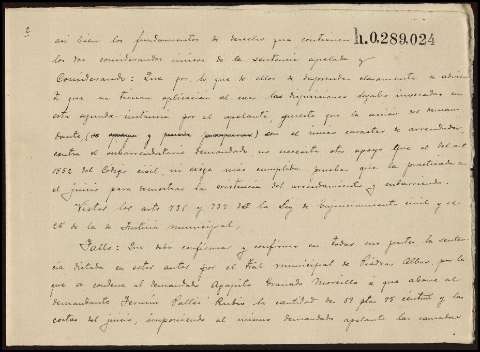 2
h.0.289.024
así bien los fundamentos de derecho que contienen
los dos considerandos únicos de la sentencia apelada y
Considerando: Que por lo que de ellos se desprende claramente se advier
te que no tienen aplicación al caso las disposiciones legales invocadas en
esta segunda instancia por el apelante, puesto que la acción
dante y con el único caracter de arrendador
contra el subarrendatario demandado no necesita otro apoyo que el del art
1552 del Código civil, ni exige más cumplida prueba que la practicada en
el juicio para demostrar la existencia del arrendamiento y subarriendo.
Vistos los arts 736 y 737 de la Ley de Enjuiciamiento civil y el
28 de la de Justicia municipal,
Fallo: Que debo confirmar y confirmo en todas sus partes la senten
cia dictada en estos autos por el Tral municipal de Piedras Albas, por la
que se condena al demandado Agapito Granado Morcillo a que abone al
demandante Fermín Pallés Rubio la cantidad de 59 ptas 95 céntimos y las
costas del juicio, imponiendo al mismo demandado apelante las causadas